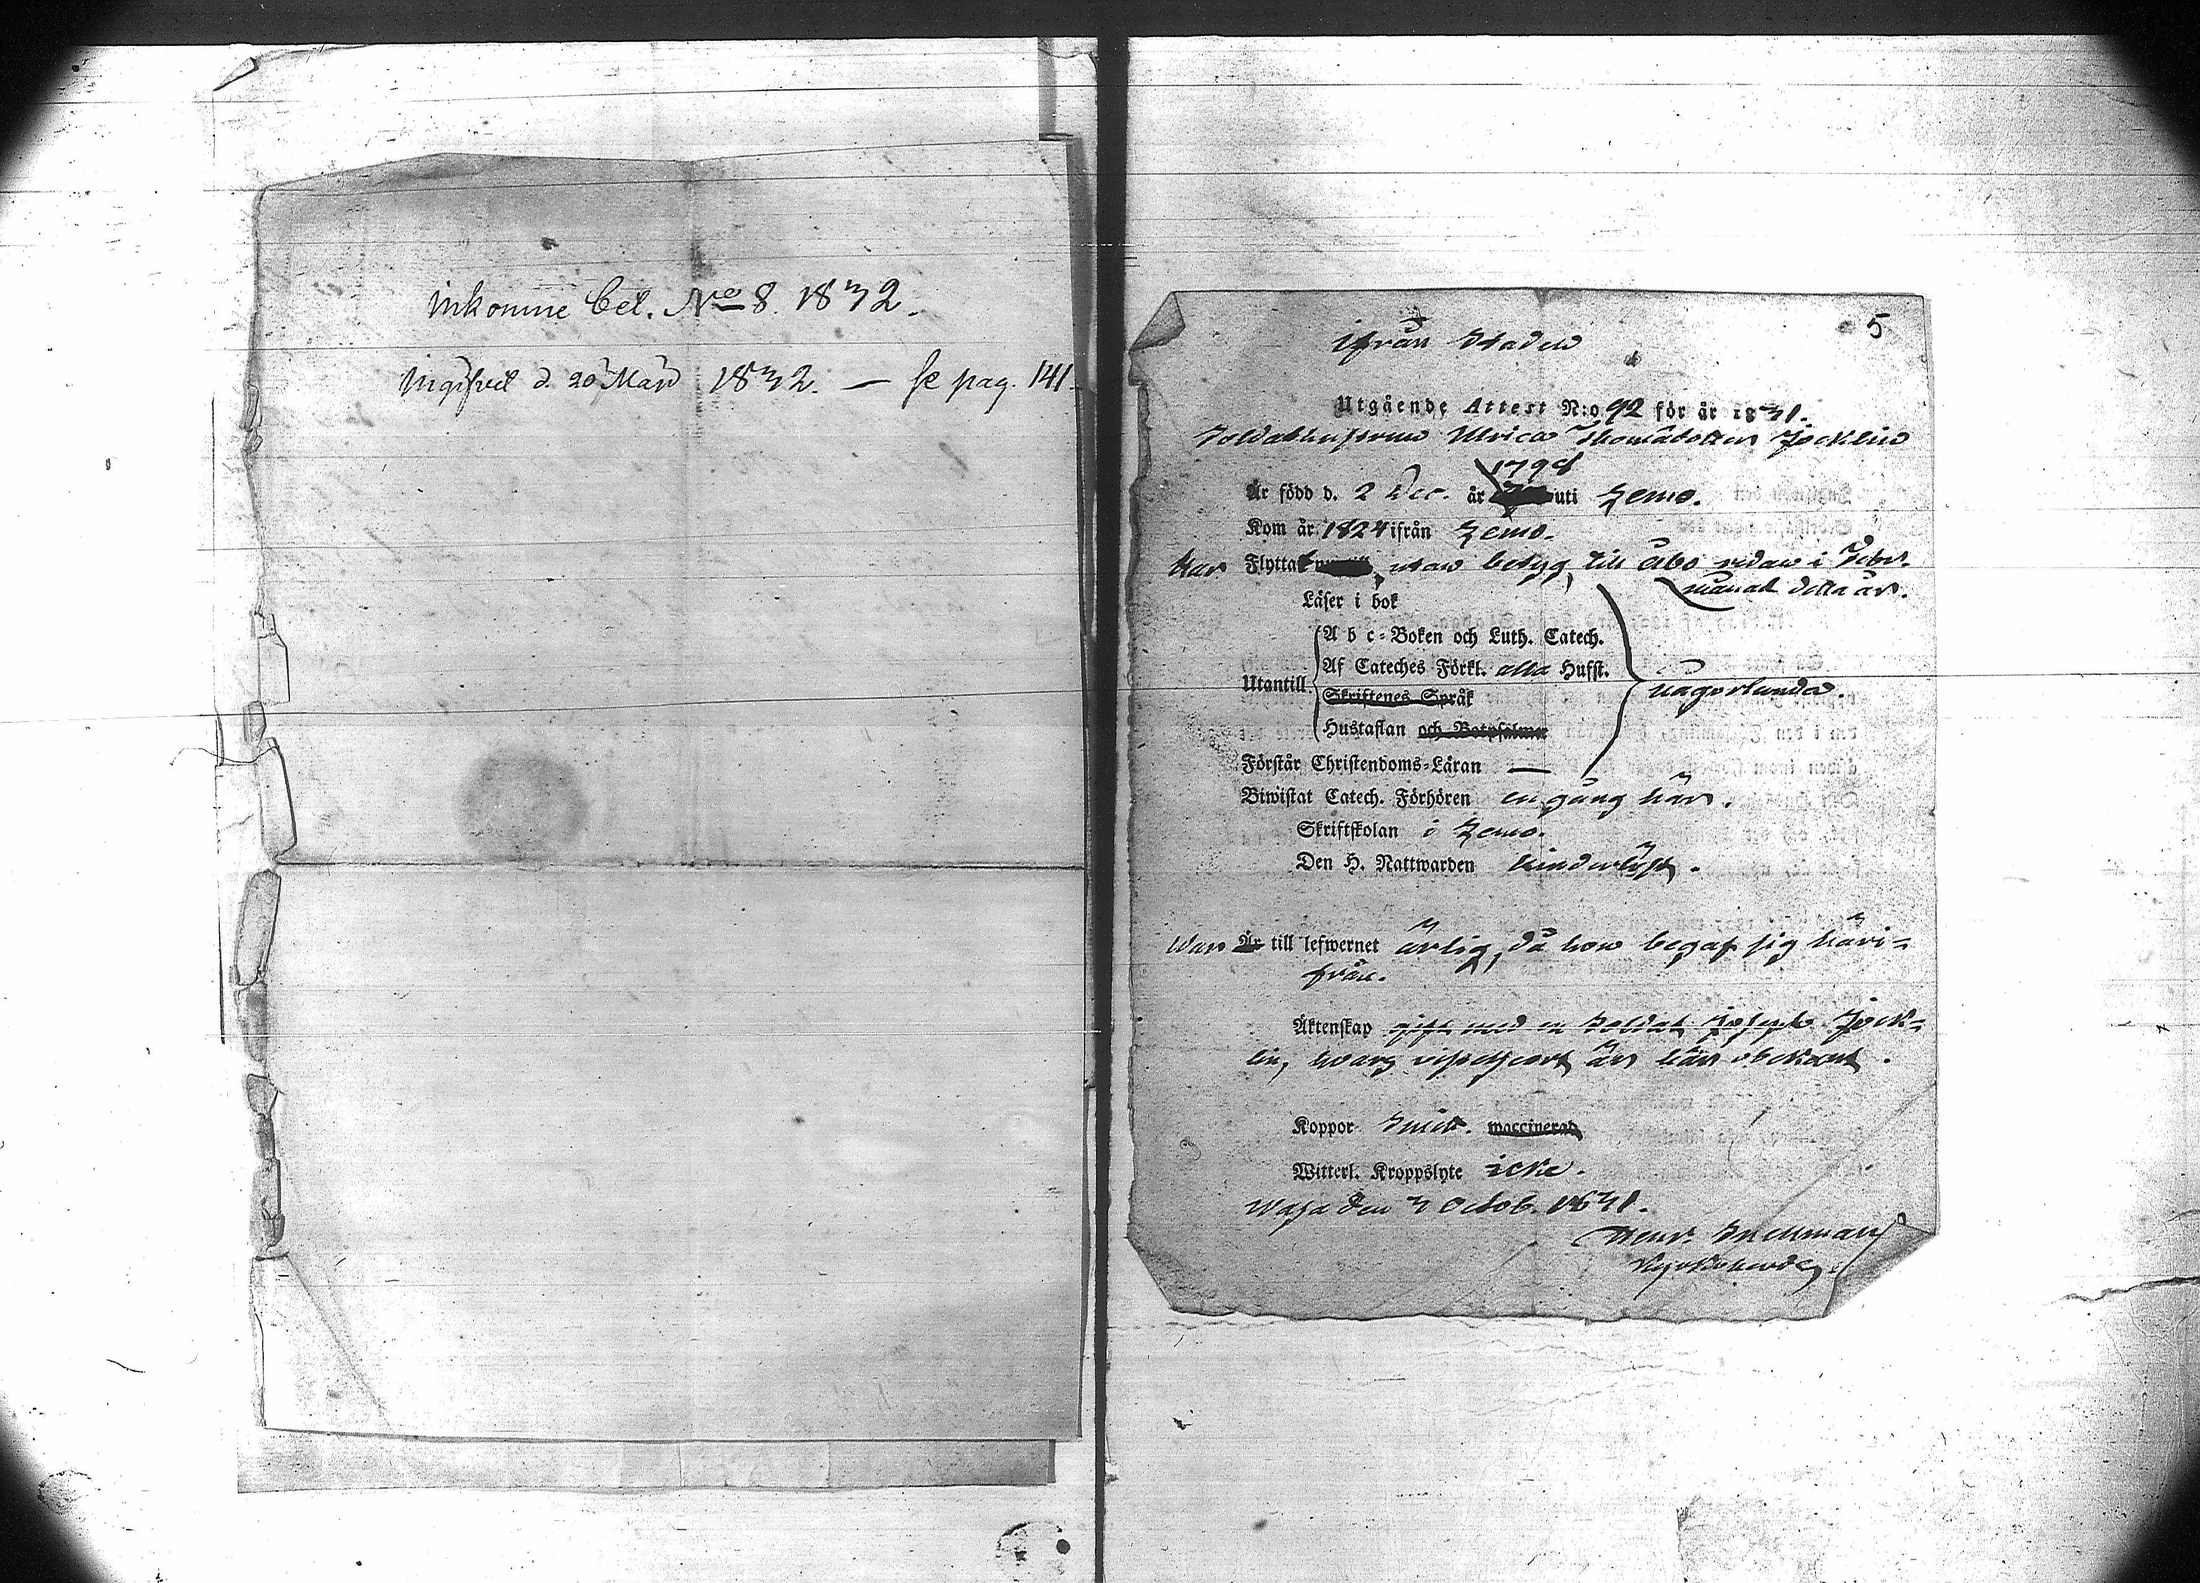 inkomne bet. No 8. 1832.
ingifvet d. 20 Mars 1832. — se pag. 141.
5
ifrån Staden
Utgående Attest N:o 92 för år 1831.
Soldathustrun Ulrica Thomædotter Jocklin
1798
Är född d. 2 Dec. år uti Lemo.
Kom år 1824 ifrån Lemo.
har Flyttat utan betyg, till Åbo redan i Febr.
månad detta år.
Läser i bok
A b c-Boken och Luth. Catech.
Af Cateches Förkl. alla Hufst.
Utantill
någorlunda.
Skriftenes Språk
Hustaflan och Botpsalmer
Förstår Christendoms-Läran —
Biwistat Catech. Förhören en gång här.
Skriftskolan i Lemo.
Den H. Nattwarden hinderlöst.
War Är till lefwernet ärlig, då hon begaf sig häri-
från.
Äktenskap gift med en Soldat Joseph Jock-
lin, hvars vistelseort är här obekant.
Koppor haft. waccinerad
Witterl. Kroppslyte icke.
Wasa den 3 Octob. 1831.
Henr. Snellman
Kyrkoherde.